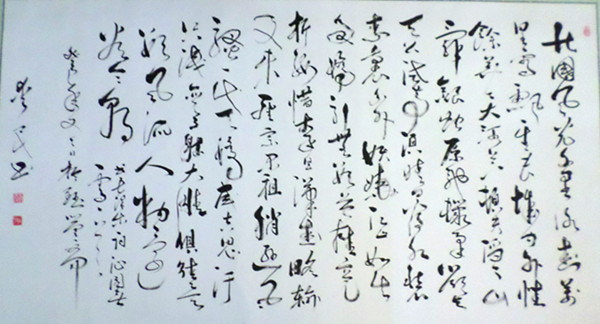 北國风光千里冰封万
里雪飘望长城内外惟
餘莽莽大河上下顿失滔滔山
舞銀蛇原馳蠟象欲與
天公试比高须晴日看红装
素裹分外妖娆江山如此
多嬌引無數英雄竞
折腰惜秦皇漢武略輸
文采唐宗宋祖稍逊风
骚一代天骄成吉思汗
只識弯弓射大雕俱往矣
数風流人物还看
今朝